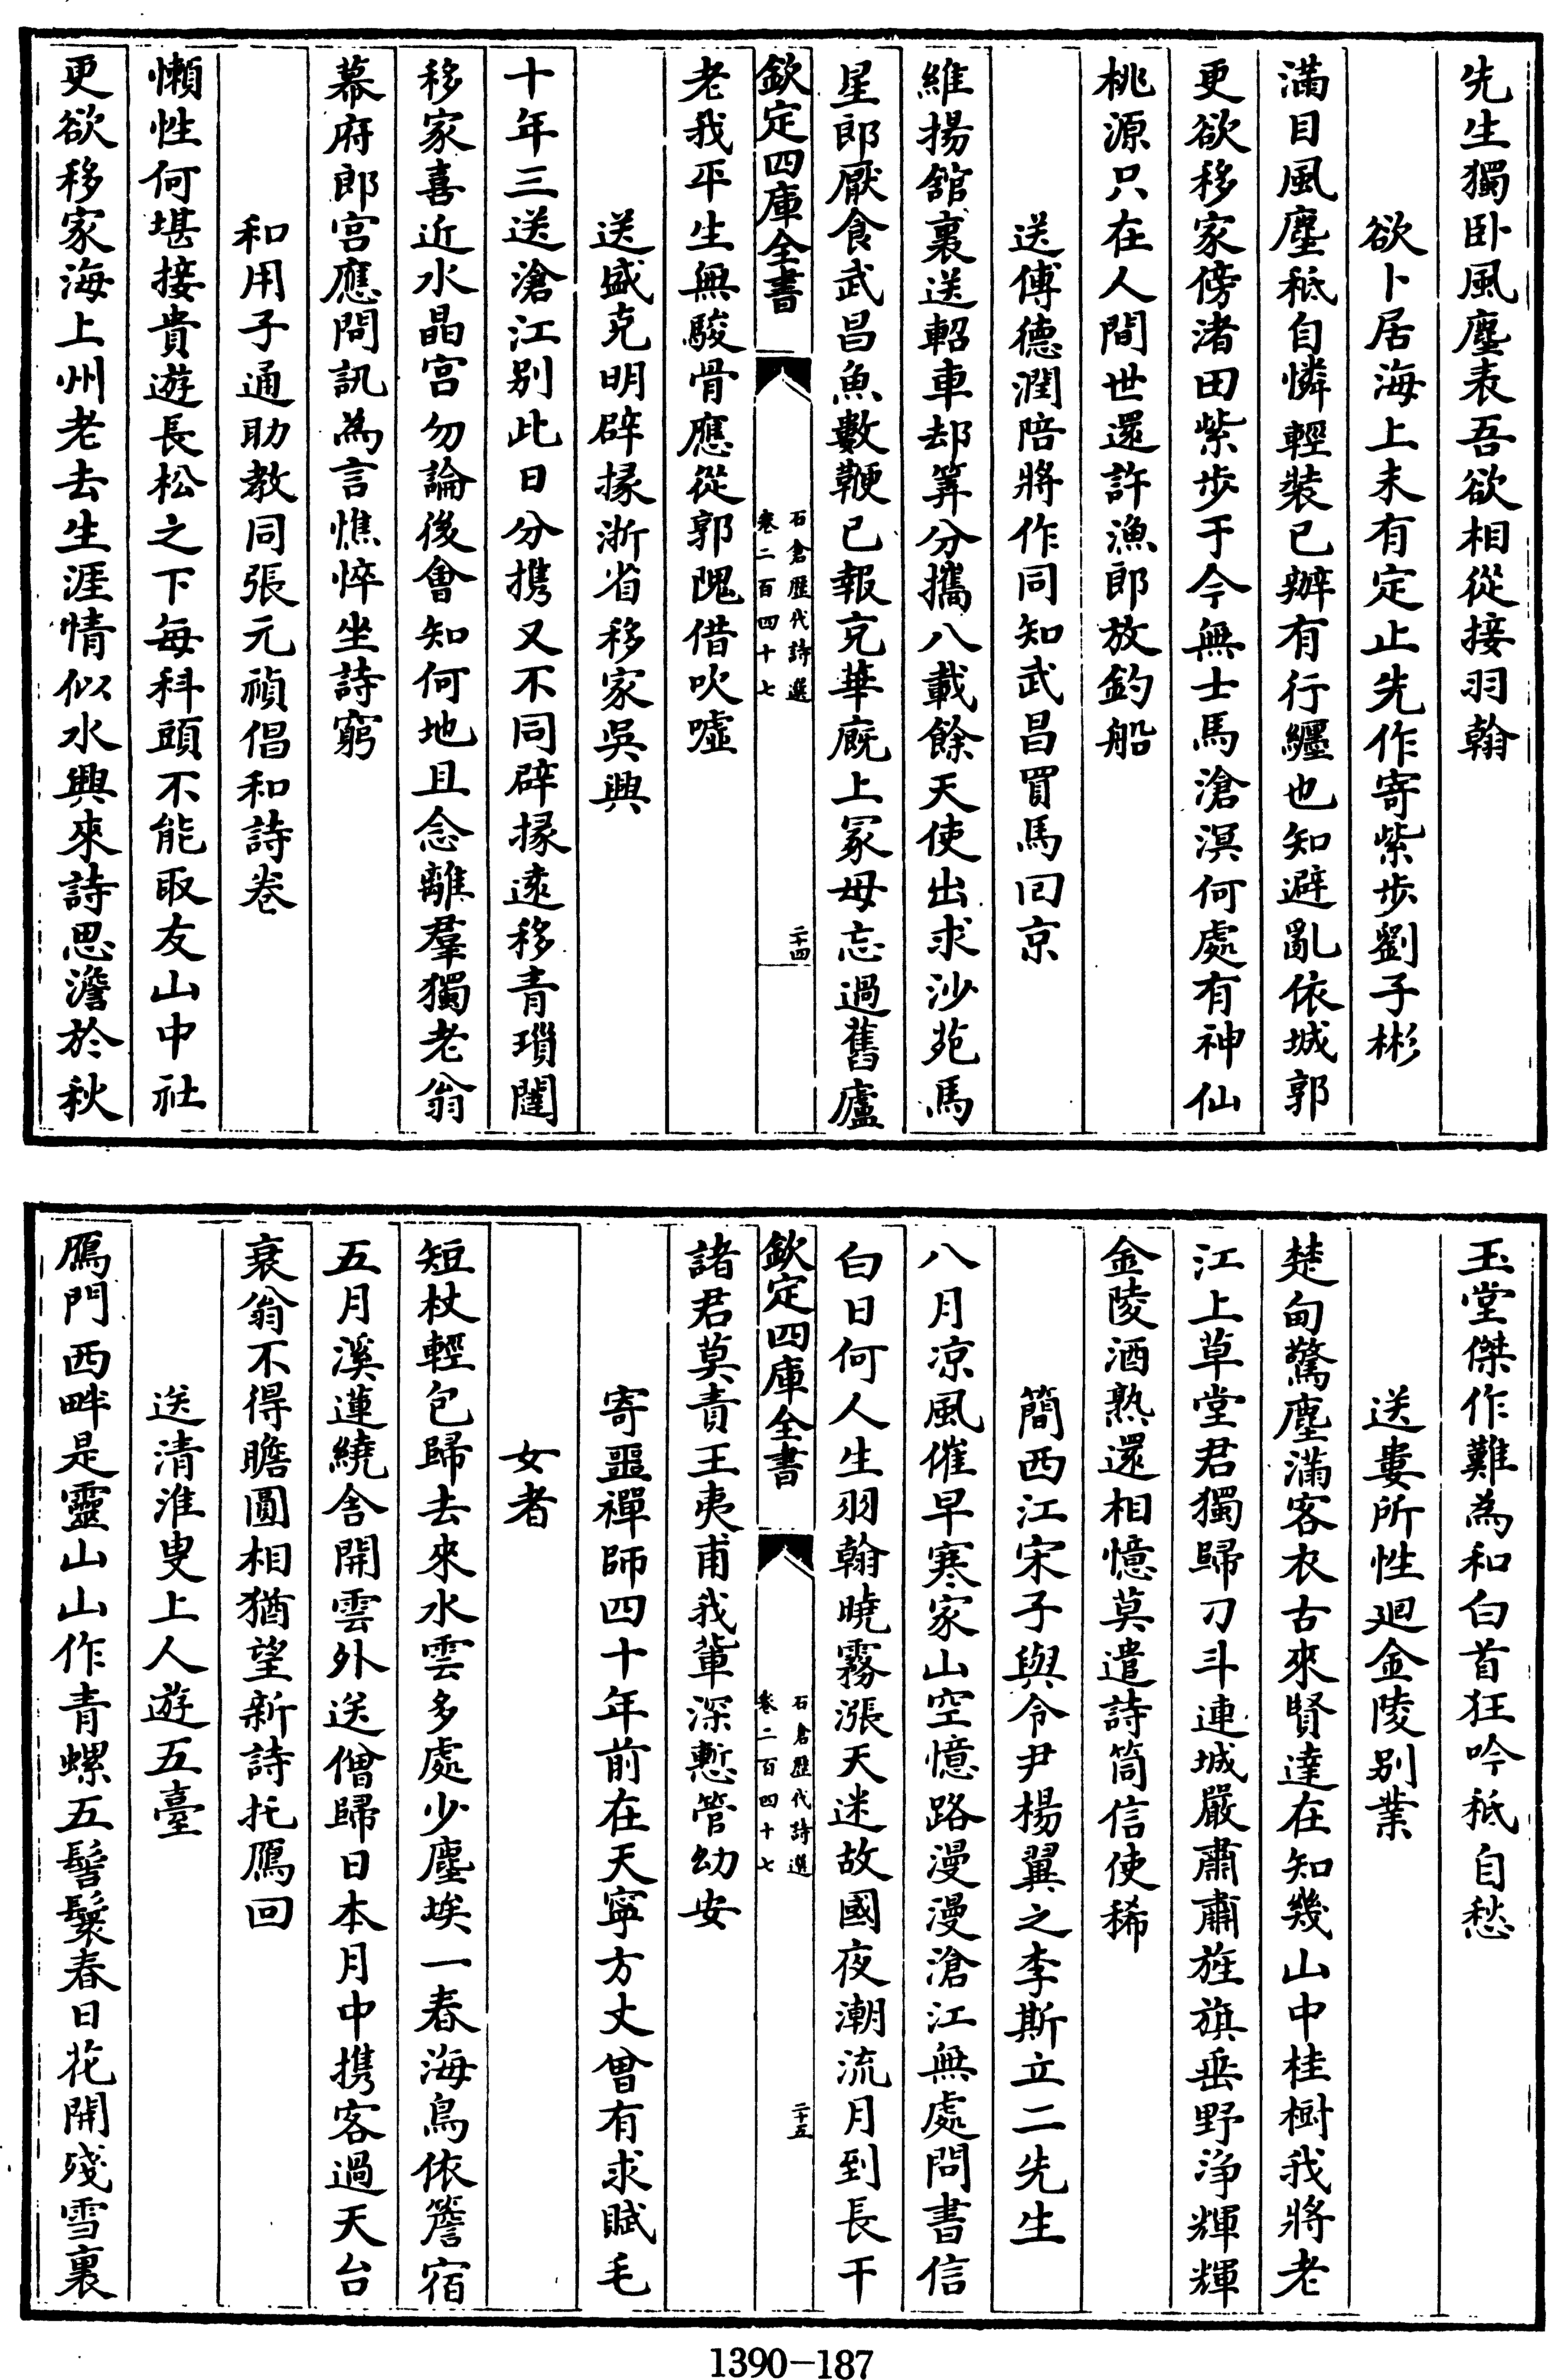 先生獨卧風塵表吾欲相從接羽翰
欲卜居海上未有定止先作寄紫步劉子彬
滿目風塵秪自憐輕裝已辦有行纒也知避亂依城郭
更欲移家傍渚田紫步于今無士馬滄溟何處有神仙
桃源只在人間世還許漁郎放釣船
送傅德潤陪將作同知武昌買馬回京
維揚舘裏送軺車却筭分攜八載餘天使出求沙苑馬
星郎厭食武昌魚數鞭已報充華廐上冡毋忘過舊廬
欽定四庫全書
石倉歷代詩選
卷二百四十七
二十四
老我平生無駿骨應從郭隗借吹噓
送盛克明辟掾浙省移家吳興
十年三送滄江别此日分携又不同辟掾遠移青瑣闥
移家喜近水晶宫勿論後會知何地且念離羣獨老翁
幕府郎宫應問訊為言憔悴坐詩窮
和用子通助教同張元禎倡和詩卷
懶性何堪接貴遊長松之下每科頭不能取友山中社
更欲移家海上州老去生涯情似水興來詩思澹於秋
玉堂傑作難為和白首狂吟秪自愁
送婁所性廻金陵别業
楚甸驚塵滿客衣古來賢達在知幾山中桂樹我將老
江上草堂君獨歸刀斗連城嚴肅肅旌旗垂野浄輝輝
金陵酒熟還相憶莫遣詩筒信使稀
簡西江宋子與令尹楊翼之李斯立二先生
八月凉風催早寒家山空憶路漫漫滄江無處問書信
白日何人生羽翰曉霧漲天迷故國夜潮流月到長干
欽定四庫全書
石倉歷代詩選
卷二百四十七
二十五
諸君莫責王夷甫我輩深慙管幼安
寄噩禪師四十年前在天寧方丈曾有求賦毛
女者
短杖輕包歸去來水雲多處少塵埃一春海鳥依簷宿
五月溪蓮繞舍開雲外送僧歸日本月中携客過天台
衰翁不得瞻圓相猶望新詩托鴈回
送清淮叟上人遊五臺
鴈門西畔是靈山山作青螺五髻鬟春日花開殘雪裏
1390-187